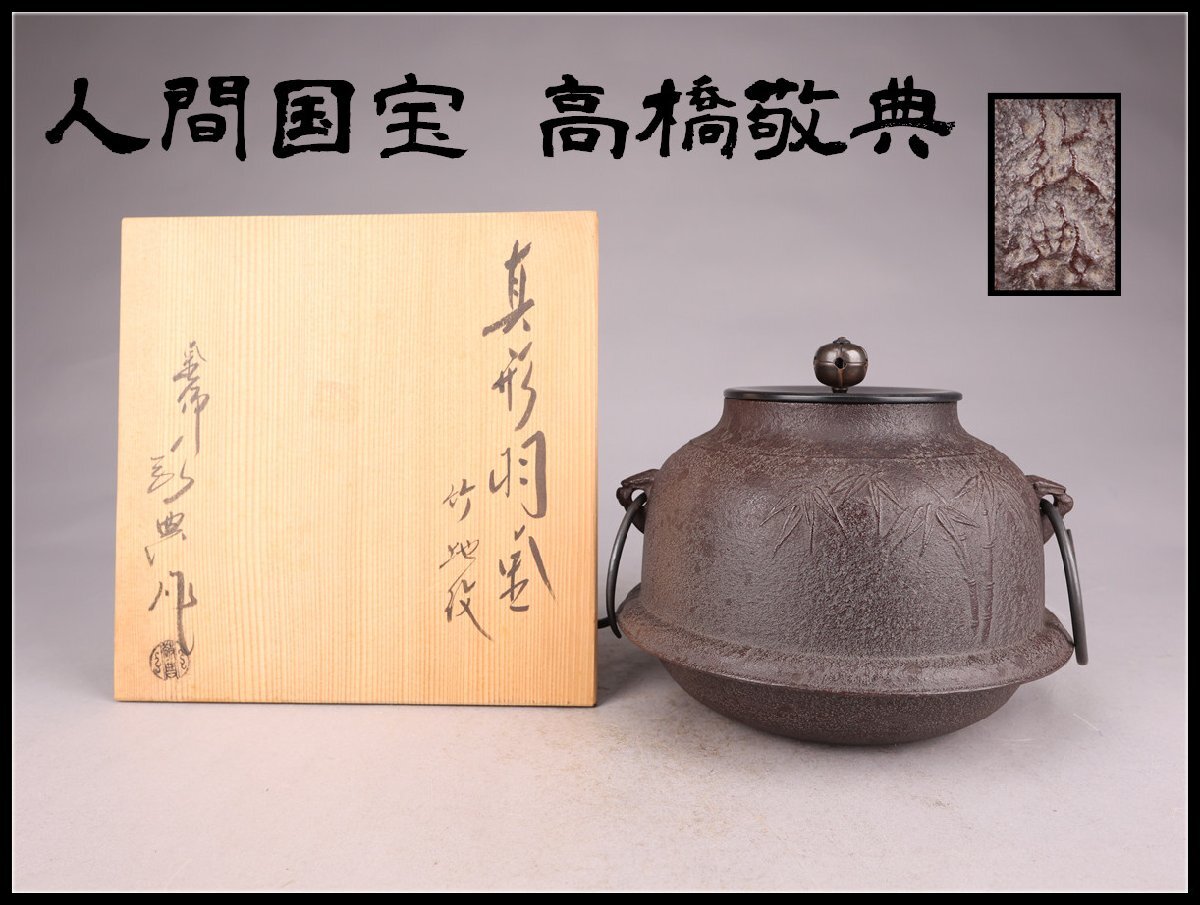 人間国宝 高橋敬典
真形羽釜
竹地紋
釜師 敬典作
敬典